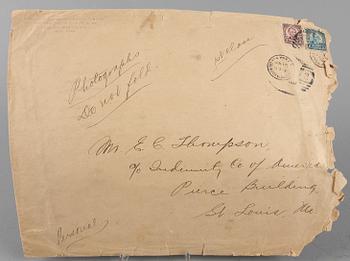 Photographs
Do not fold.
Mr E. C. Thompson,
c/o Indemnity Co of America
Pierce Building,
St Louis, Mo
Personal